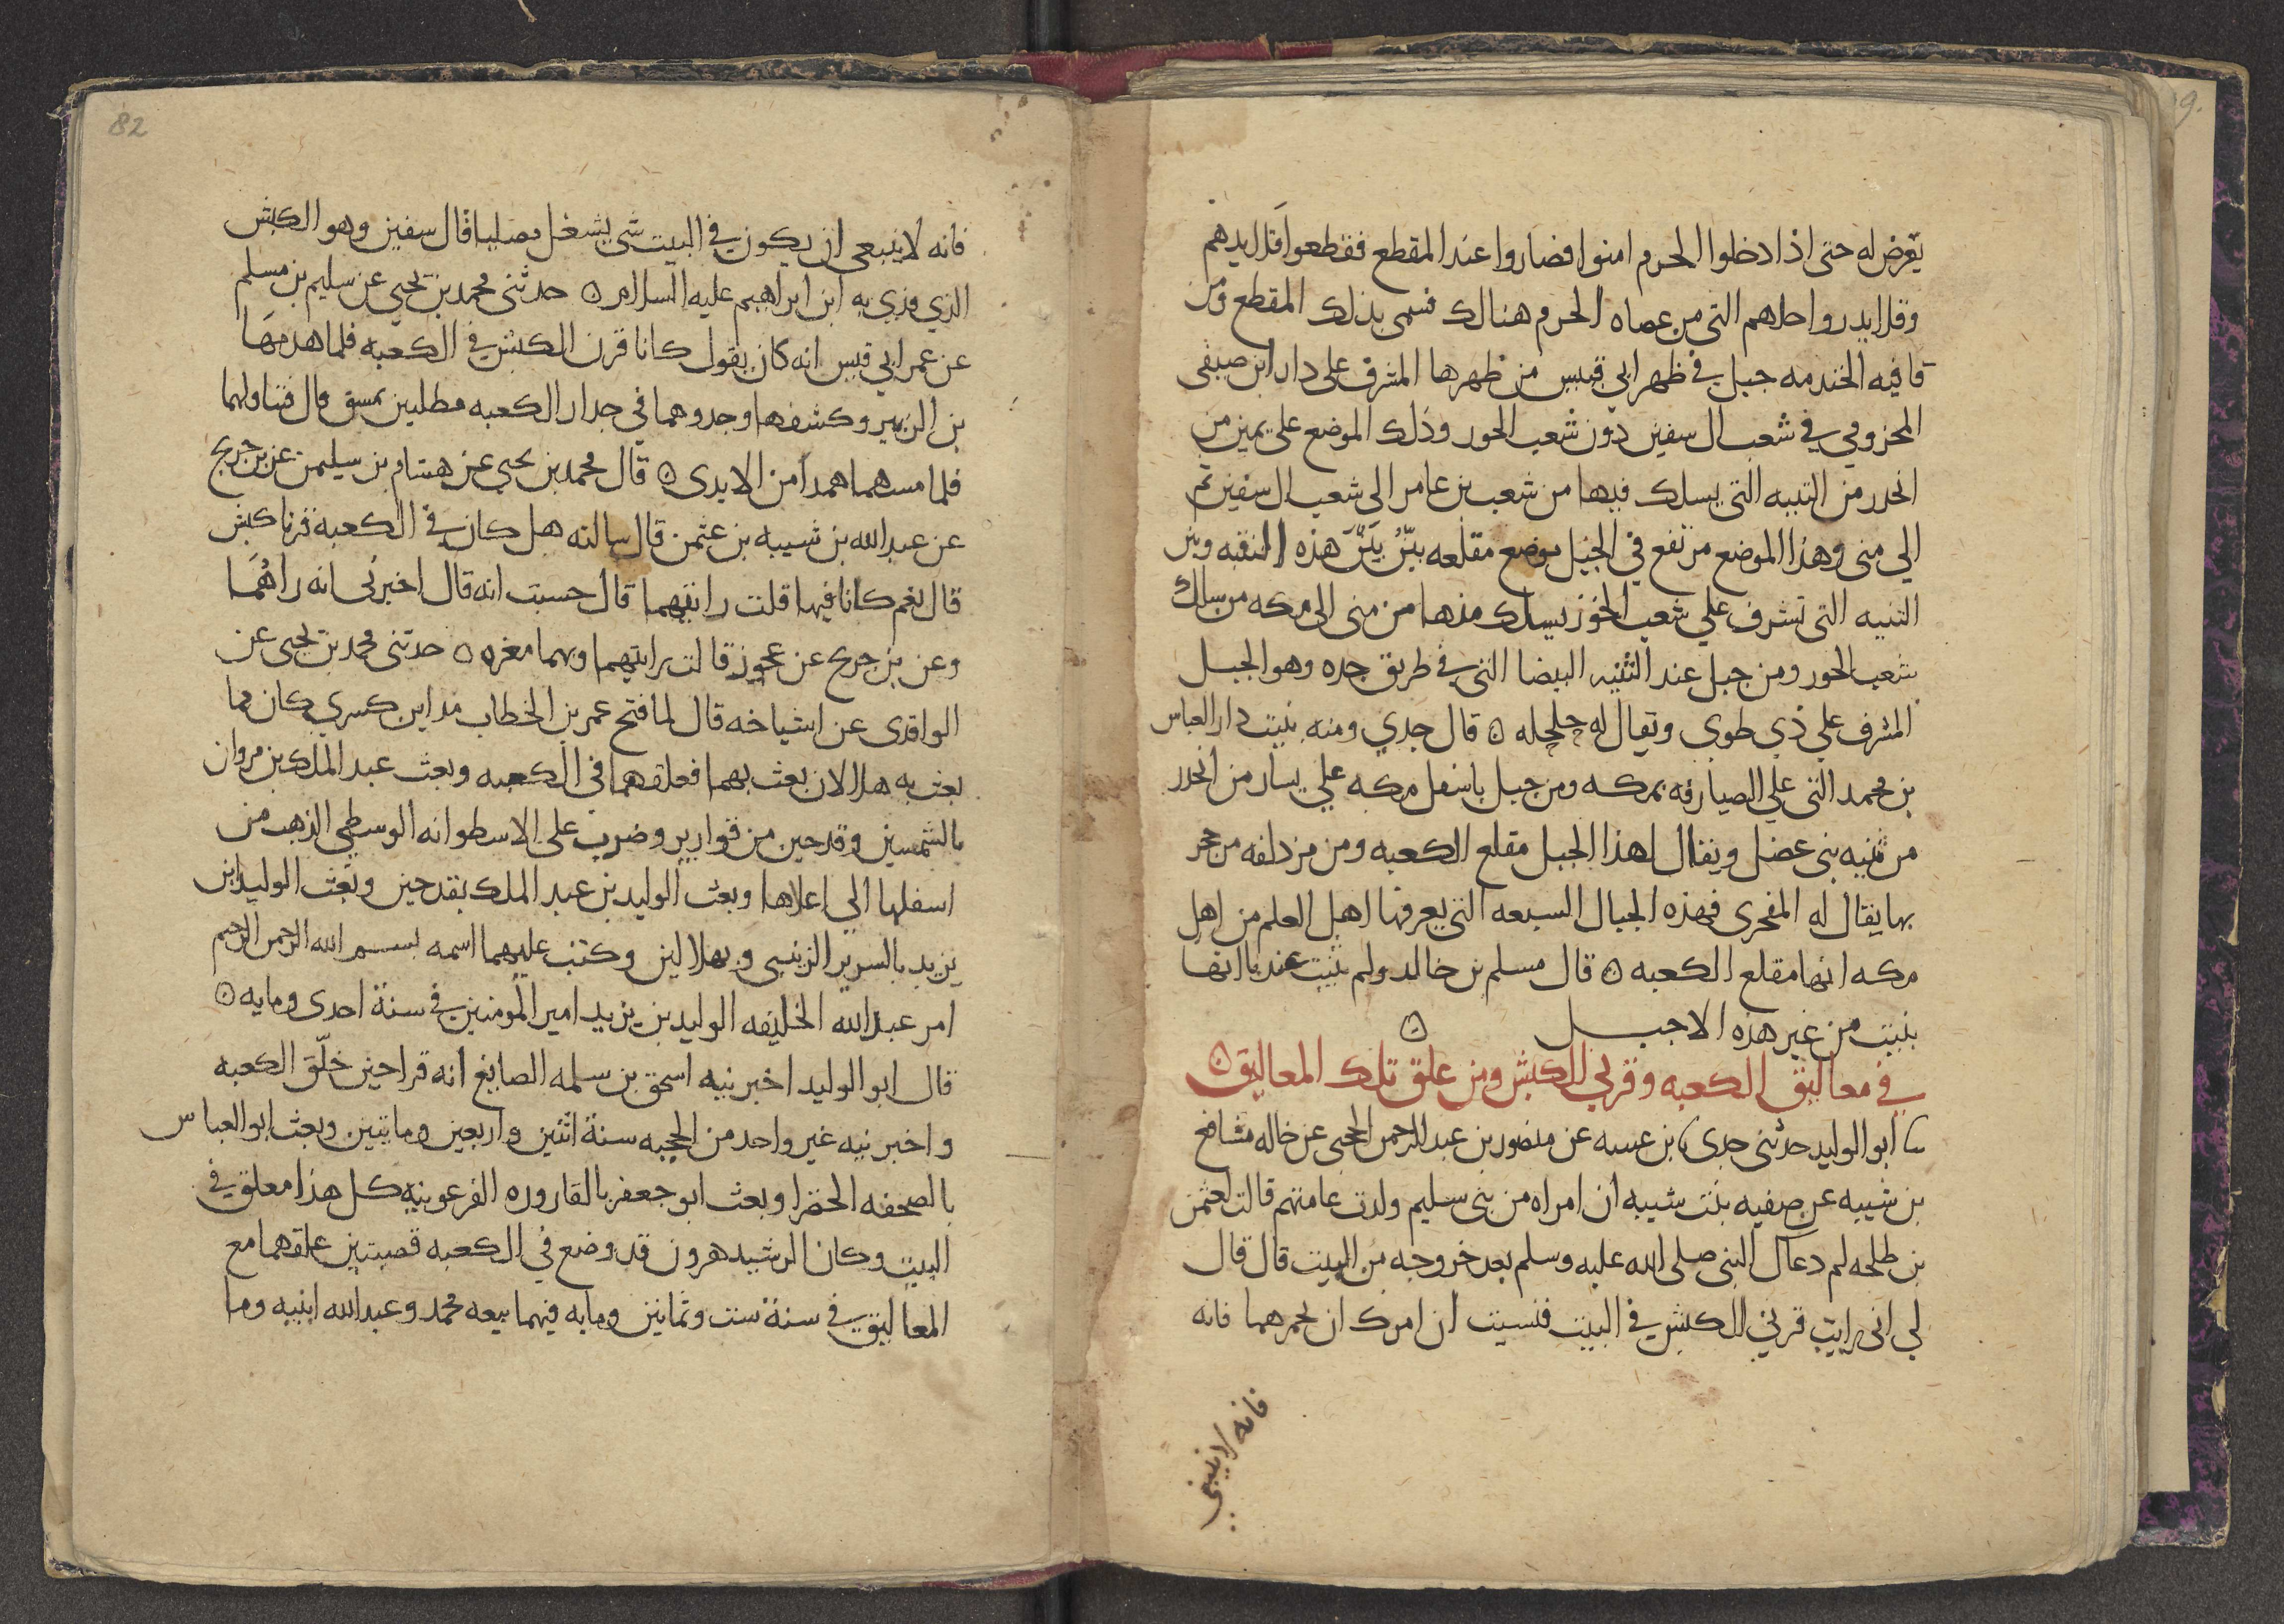 يعرض له حتى اذا دخلوا الحرم امنوا فصاروا عند المقطع فقطعوا قلايدهم
وقلايد رواحلهم التي من عصاه الحرم هنالك فسمى بذلك المقطع ومن
قافيه الخندمه جبل في ظهر ابي قبيس من ظهرها المشرف على دار ابن صيفى
المخزومي في شعب ال سفين دون شعب الخور وذلك الموضع على يمين من
انحدر من الثنيه التي يسلك فيها من شعب بن عامر الى شعب ال سفين ثم
الي منى وهذا الموضع مرتفع في الجبل موضع مقلعه بيّن بين هذه النقبه وبين
الثنيه التى تشرف علي شعب الخوز يسلك منها من منى الى مكه من سلك
شعب الخور ومن جبل عند الثنيه البيضا التي في طريق جده وهو الجبل
المشرف علي ذي طوى ويقال له حلحله ۞ قال جدي ومنه بنيت دار العباس
بن محمد التى علي الصيارفه بمكه ومن جبل باسفل مكه علي يسار من انحدر
من ثنيه بنى عضل ويقال لهذا الجبل مقلع الكعبه ومن مزدلفه من حجر
بها يقال له المفجرى فهذه الجبال السبعه التي يعرفها اهل العلم من اهل
مكه انها مقلع الكعبه ۞ قال مسلم بن خالد ولم يثبت عندنا انها
بنيت من غير هذه الاجبل ۞
في معاليق الكعبه وقرني الكبش ومن علق تلك المعاليق ۞
ابو الوليد حدثنى جدى بن عيينه عن منصور بن عبد الرحمن الحجبى عن خاله مشافع
بن شيبه عن صفيه بنت شيبه ان امراه من بنى سليم ولدت عامتهم قالت لعثمن
بن طلحه لم دعاك النبى صلى الله عليه وسلم بعد خروجه من البيت قال قال
لي انى رايت قرني الكبش في البيت فنسيت ان امرك ان تخمرهما فانه
فانه لا ينبغي
82
فانه لا ينبغى ان يكون في البيت شى يشغل مصليا قال سفين وهو الكبش
الذي فدي به ابن ابراهيم عليه السلام ۞ حدثنى محمد بن يحيى عن سليم بن مسلم
عن عمر ابي قيس انه كان يقول كانا قرن الكبش في الكعبه فلما هدمها
بن الزبير وكشفها وجدوهما في جدار الكعبه مطليين بمسق قال فتناولهما
فلما مسهما همدا من الايدى ۞ قال محمد بن يحيى عن هشام بن سليمن عن بن جريج
عن عبد الله بن شيبه بن عثمن قال سالته هل كان في الكعبة قرنا كبش
قال نعم كانا فيها قلت رايتهما قال حسبت انه قال اخبرنى انه راهما
وعن بن جريج عن عجوز قالت رايتهما وبهما مغره ۞ حدثنى محمد بن يحيى عن
الواقدى عن اشياخه قال لما فتح عمر بن الخطاب مداين كسري كان مما
بعث به هلالان بعث بهما فعلقهما في الكعبه وبعث عبد الملك بن مروان
بالشمسين وقدحين من قوارير وضرب على الاسطوانه الوسطى الذهب من
اسفلها الى اعلاها وبعث الوليد بن عبد الملك بقدحين وبعث الوليد ابن
يزيد بالسرير الزينبى وبهلالين وكتب عليهما اسمه بسم الله الرحمن الرحيم
امر عبد الله الخليفه الوليد بن يزيد امير المومنين في سنة احدى ومايه ۞
قال ابو الوليد اخبرنيه اسحق بن سلمه الصايغ انه قرا حين خلّق الكعبه
واخبرنيه غير واحد من الحجبه سنة اثنين واربعين ومايتين وبعث ابو العباس
بالصحفه الخضرا وبعث ابو جعفر بالقاروره الفرعونيه كل هذا معلق في
البيت وكان الرشيد هرون قد وضع في الكعبه قصبتين علقهما مع
المعاليق في سنة ست وثمانين ومايه فيهما بيعه محمد وعبد الله ابنيه وما